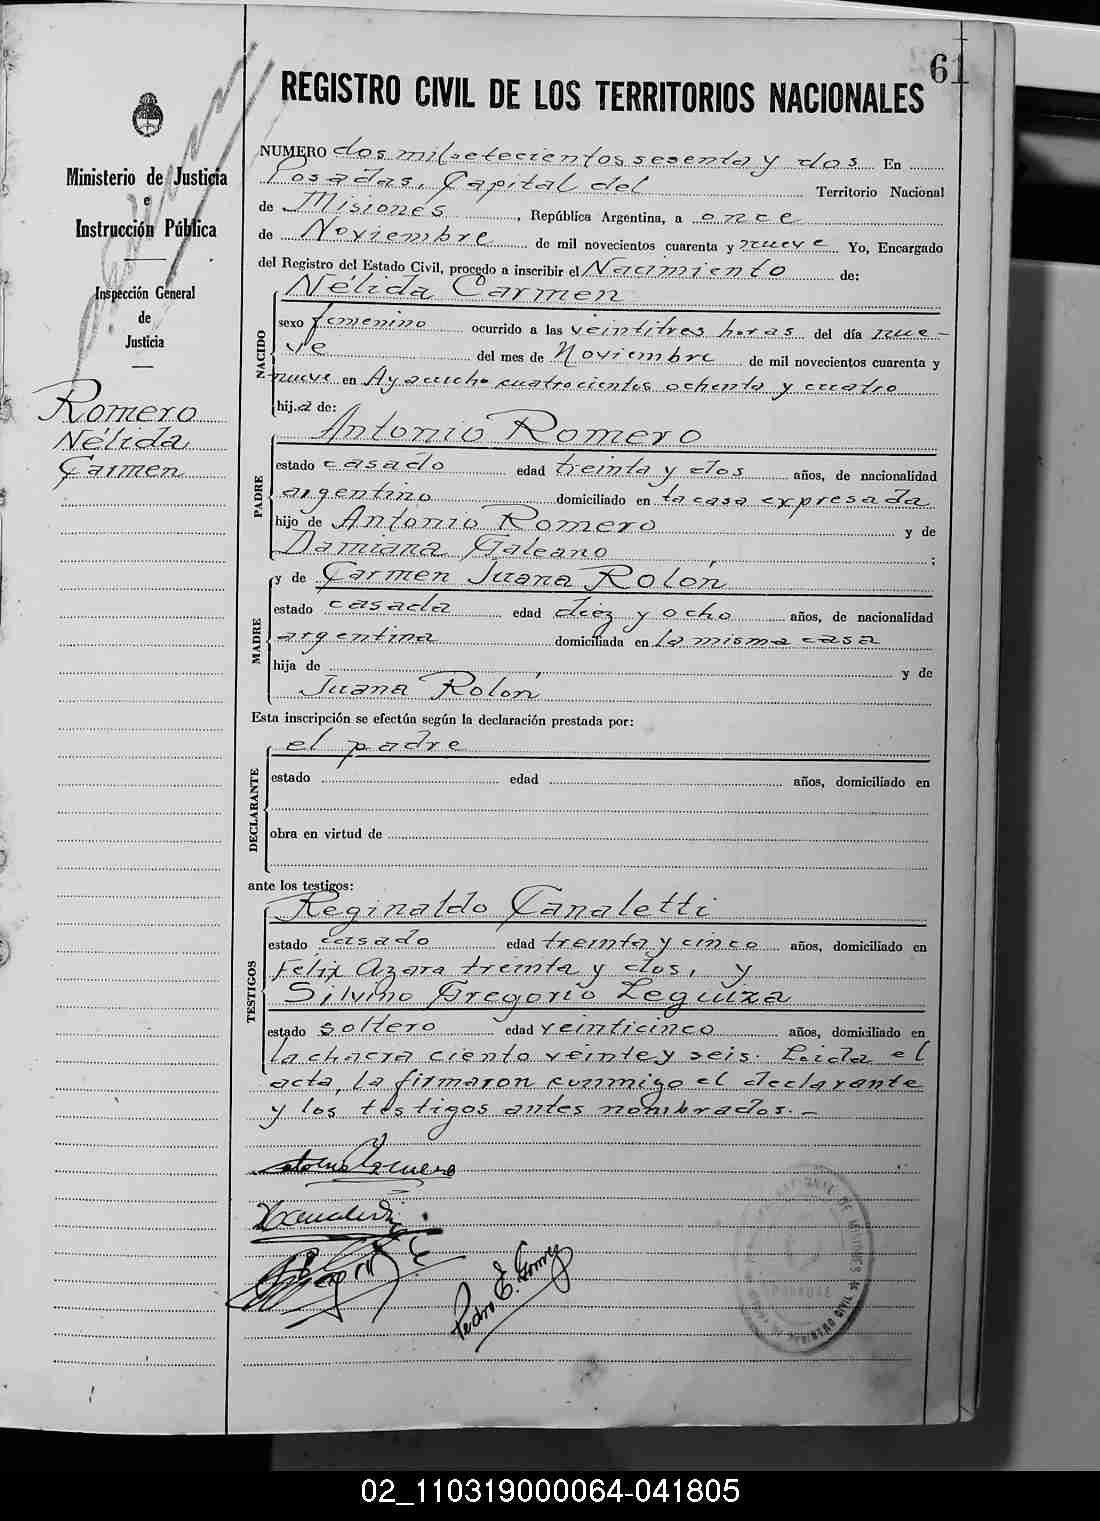 61
REGISTRO CIVIL DE LOS TERRITORIOS NACIONALES
Ministerio de Justicia
e
Instrucción Pública
Inspección General
de
Justicia
Romero
Nélida
Carmen
NUMERO dos mil setecientos sesenta y dos En
Posadas, Capital del Territorio Nacional
de Misiones, República Argentina, a once
de Noviembre de mil novecientos cuarenta y nueve Yo, Encargado
del Registro del Estado Civil, procedo a inscribir el Nacimiento de:
Nélida Carmen
NACIDO
sexo femenino ocurrido a las veintitres horas del día nue-
ve del mes de Noviembre de mil novecientos cuarenta y
nueve en Ayacucho cuatrocientos ochenta y cuatro
hija de:
Antonio Romero
PADRE
estado casado edad treinta y dos años, de nacionalidad
argentino domiciliado en la casa expresada
hijo de Antonio Romero y de
Damiana Galeano ;
y de Carmen Juana Rolón
MADRE
estado casada edad diez y ocho años, de nacionalidad
argentina domiciliada en la misma casa
hija de y de
Juana Rolón
Esta inscripción se efectúa según la declaración prestada por:
el padre
DECLARANTE
estado edad años, domiciliado en
obra en virtud de
ante los testigos:
Reginaldo Canaletti
TESTIGOS
estado casado edad treinta y cinco años, domiciliado en
Félix Azara treinta y dos, y
Silvino Gregorio Leguiza
estado soltero edad veinticinco años, domiciliado en
la chacra ciento veinte y seis. Leida el
acta, la firmaron conmigo el declarante
y los testigos antes nombrados.-
Pedro E.
02_110319000064-041805